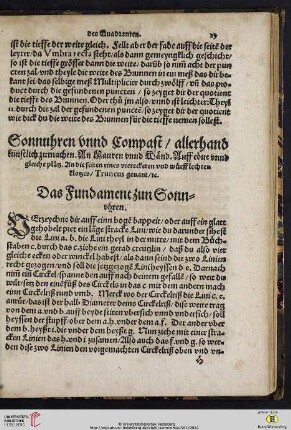 des Quadranten. 29
ist die tieffe der weite gleich. Felle aber der fade auff die seite der
leyter, da Vmbra recta steht, als dann gemeyngklich geschicht/
so ist die tieffe grösser dann die weite. darüb so nim̃ acht der pun
cten zal / vnd theyle die weite des Brunnen in
kant sei, das selbige meß Multiplicier durch zwölff / vñ das pro
duct durch die gefundenen puncten / so zeyget dir der quotient
die tieffe des Brunnen. Oder thů jm also / vnnd ist leichter. Theyl
durch die zal der gefundenen punct so zeyget dir der quotient
wie dick du die weite des Brunnen für die tieffe nemen sollest.
Sonnuhren vnnd Compast / allerhand
künstlich zumachen. An Mauren vnnd Wänd. Auff ebne vnnd
gleiche plätz. An die seiten eines viereckten vnd würfflechten
klotzes / Truncus genant / ꝛc.
Das Fundament zun Sonn-
uhren.
VErzeychne dir auff einn bogē bappeir / oder auff ein glatt
gehobelt pret ein läge stracke Lini / wie du darunder sihest
die Lini a. b. die Lini theyl in der mitte / mit dem Bůch-
staben c. durch das c. ziehe ein gerad creutzlin / daß du also vier
gleicht ecken oder winckel habest / als dann seind die zwo Linien
recht gezogen / vnd soll die jetzgezogē Lini heyssen d. e. Darnach
nim̃ ein Circkel / spanne den auff nach deinem gefallē / so weit du
wilt / setz den eine fůß des Circkels in das c. mit dem andern mach
eine Circkelriß rund vmb. Merck wo der Circkelriß die Lini c. e.
rürt / das ist der halb Diameter deines Circkelriß / diese weite trag
von dem a. vnd b. auff beyde seiten übersich vnnd vndersich / soll
heyssen der stupff / ober dem a. h. vnder dem a. f. Der ander ober
dem b. heyßt i. die vnder dem heyßt g. Nun ziehe mit einer stra-
cken Linien das h. vnd i. zusamen / Also auch das f. vnd g. so wer-
den diß zwo Linien den voigemachten Circkelriß oben vnd vn-